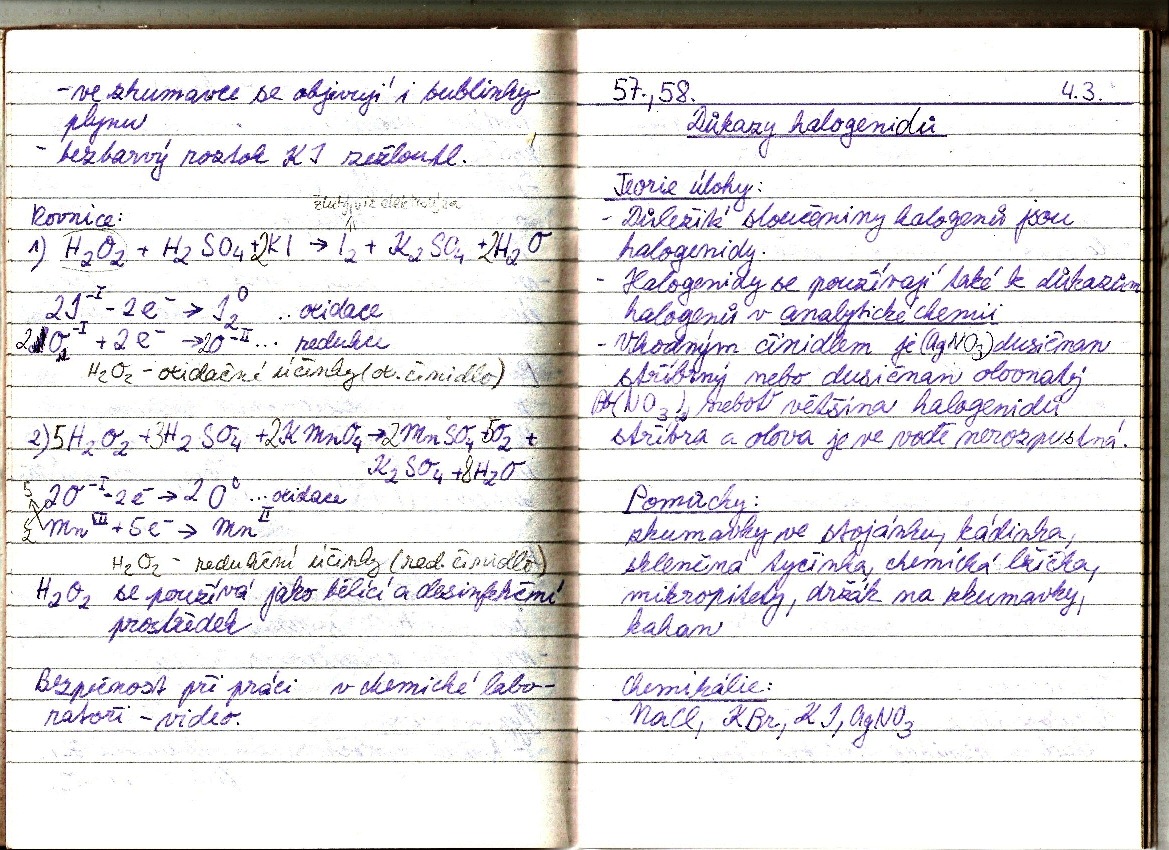 - ve zkumavce se objevují i bublinky
plynu
- bezbarvý roztok KI zežloutl.
Rovnice:
1) H₂O₂ + H₂SO₄ + 2KI → I₂ + K₂SO₄ + 2H₂O
2I⁻ᴵ - 2e⁻ → I₂⁰ ... oxidace
2O⁻ᴵ + 2e⁻ → 2O⁻ᴵᴵ ... redukce
H₂O₂ - oxidační účinky (ox. činidlo)
2) 5H₂O₂ + 3H₂SO₄ + 2KMnO₄ → 2MnSO₄ 5O₂ +
K₂SO₄ + 8H₂O
5 2O⁻ᴵ - 2e⁻ → 2O⁰ ... oxidace
2 Mnⱽᴵᴵ + 5e⁻ → Mnᴵᴵ
H₂O₂ - redukční účinky (red. činidlo)
H₂O₂ se používá jako bělící a desinfekční
prostředek
Bezpečnost při práci v chemické labo-
ratoři - video.
57., 58. 4.3.
Důkazy halogenidů
Teorie úlohy:
- Důležité sloučeniny halogenů jsou
halogenidy.
- Halogenidy se používají také k důkazům
halogenů v analytické chemii
- Vhodným činidlem je (AgNO₃) dusičnan
stříbrný nebo dusičnan olovnatý
Pb(NO₃)₂, neboť většina halogenidů
stříbra a olova je ve vodě nerozpustná.
Pomůcky:
zkumavky ve stojánku, kádinka,
skleněná tyčinka, chemická lžička,
mikropipety, držák na zkumavky,
kahan
Chemikálie:
NaCl, KBr, KI, AgNO₃